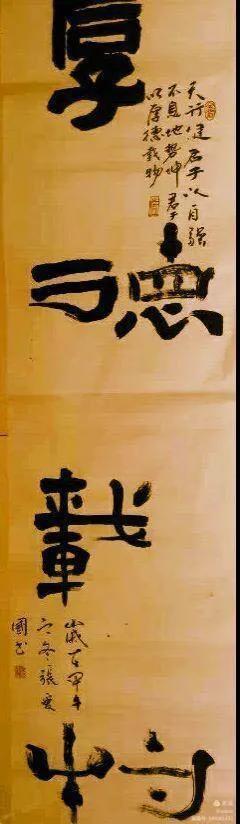 厚
德
載
物
天行健君子以自强
不息地势坤君子
以厚德载物
歲
甲午
之冬張愛
國书